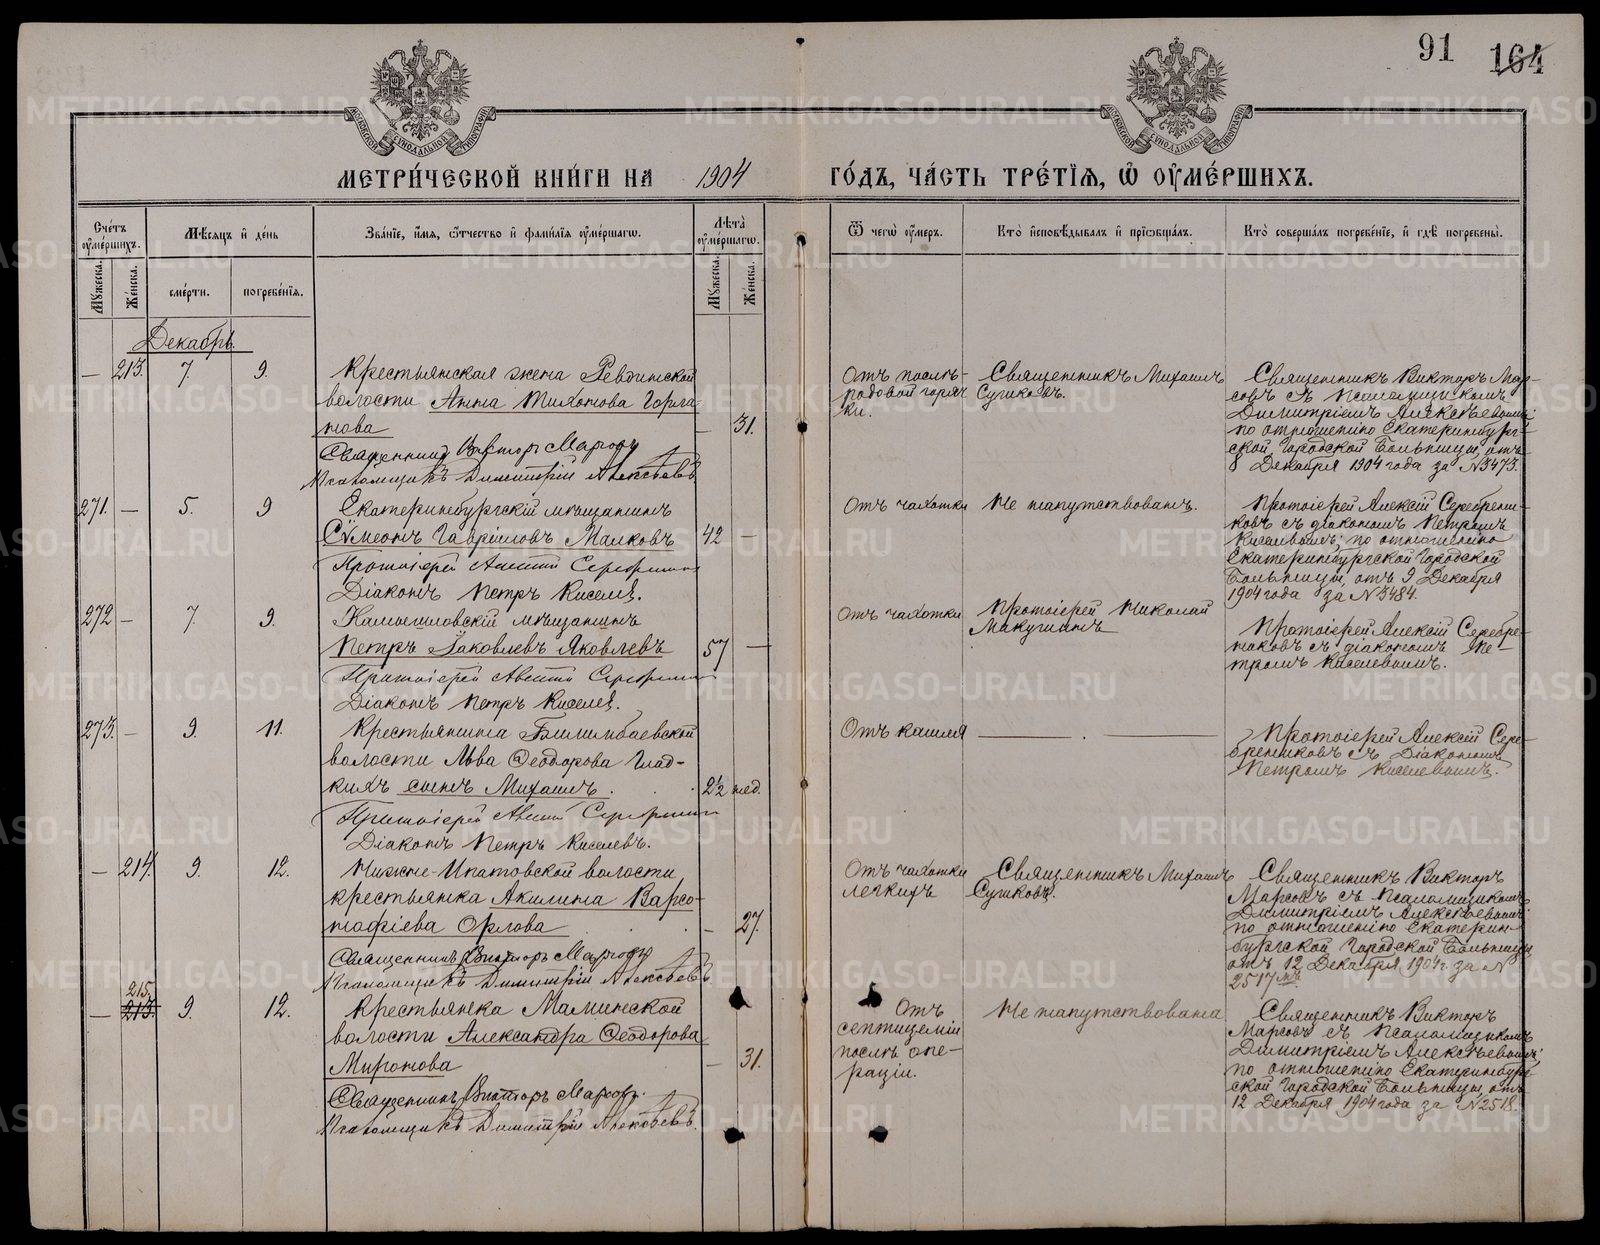 91 164
МЕТРИ́ЧЕСКОЙ КНИ́ГИ НА 1904 ГО́ДЪ, ЧА́СТЬ ТРЕ́ТІѦ, Ѽ ОУ҆МЕ́РШИХЪ.
Сче́тъ оу҆ме́ршихъ.
Мѣ́сяцъ и҆ де́нь
Зва́ніе, и҆́мя, ѻ҆́тчество и҆ фами́лія оу҆ме́ршагѡ.
Лѣ́та оу҆ме́ршагѡ.
Ѿ чегѡ̀ оу҆́меръ.
Кто̀ и҆сповѣ́дывалъ и҆ прїѡбща́лъ.
Кто̀ соверша́лъ погребе́ніе, и҆ гдѣ̀ погребены̀.
Му́жеска. Же́нска. сме́рти. погребе́нія. Му́жеска. Же́нска.
Декабрь.
— 213. 7. 9.
Крестьянская жена Ревдинской
волости Анна Тихонова Горла-
нова — 31.
Священникъ Викторъ Марсовъ
Псаломщикъ Димитрій Алексѣевъ
Отъ послѣ-
родовой горяч
ки.
Священникъ Михаилъ
Сушковъ.
Священникъ Викторъ Мар-
совъ съ псаломщикомъ
Димитріемъ Алексѣевымъ;
по отношенію Екатеринбург-
ской Городской Больницы, отъ
8 Декабря 1904 года за №3473.
271. — 5. 9
Екатеринбургскій мѣщанинъ
Сѵмеонъ Гавріиловъ Малковъ 42 —
Протоіерей Алексій Серебренниковъ
Діаконъ Петръ Киселевъ.
Отъ чахотки
Не напутствованъ.
Протоіерей Алексій Серебрени-
ковъ съ діакономъ Петромъ
Киселевымъ; по отношенію
Екатеринбургской Городской
Больницы, отъ 9 Декабря
1904 года за №3484.
272 — 7. 9.
Камышловскій мѣщанинъ
Петръ Іаковлевъ Яковлевъ 57 —
Протоіерей Алексій Серебренниковъ
Діаконъ Петръ Киселевъ.
Отъ чахотки
Протоіерей Николай
Макушинъ
Протоіерей Алексій Серебре-
никовъ съ діакономъ Пе-
тромъ Киселевымъ.
273. — 9. 11.
Крестьянина Билимбаевской
волости Льва Ѳеодорова Глад-
кихъ сынъ Михаилъ. 2½ нед.
Протоіерей Алексій Серебренниковъ
Діаконъ Петръ Киселевъ.
Отъ кашля
— . —
Протоіерей Алексій Сере-
бренниковъ съ Діакономъ
Петромъ Киселевымъ.
— 214. 9. 12.
Нижне-Ипатовской волости
крестьянка Акилина Варсо-
нофіева Орлова — 27.
Священникъ Викторъ Марсовъ
Псаломщикъ Димитрій Алексѣевъ
Отъ чахотки
легкихъ
Священникъ Михаилъ
Сушковъ.
Священникъ Викторъ
Марсовъ съ псаломщикомъ
Димитріемъ Алексѣевымъ;
по отношенію Екатерин-
бургской Городской Больницы
отъ 12 Декабря 1904 г. за №
2517мъ
215.
— 213. 9. 12.
Крестьянка Маминской
волости Александра Ѳеодорова
Миронова — 31.
Священникъ Викторъ Марсовъ.
Псаломщикъ Димитрій Алексѣевъ.
Отъ
септицеміи
послѣ опе-
раціи.
Не напутствована
Священникъ Викторъ
Марсовъ съ псаломщикомъ
Димитріемъ Алексѣевымъ;
по отношенію Екатеринбург-
ской Городской Больницы, отъ
12 Декабря 1904 года за №2518.